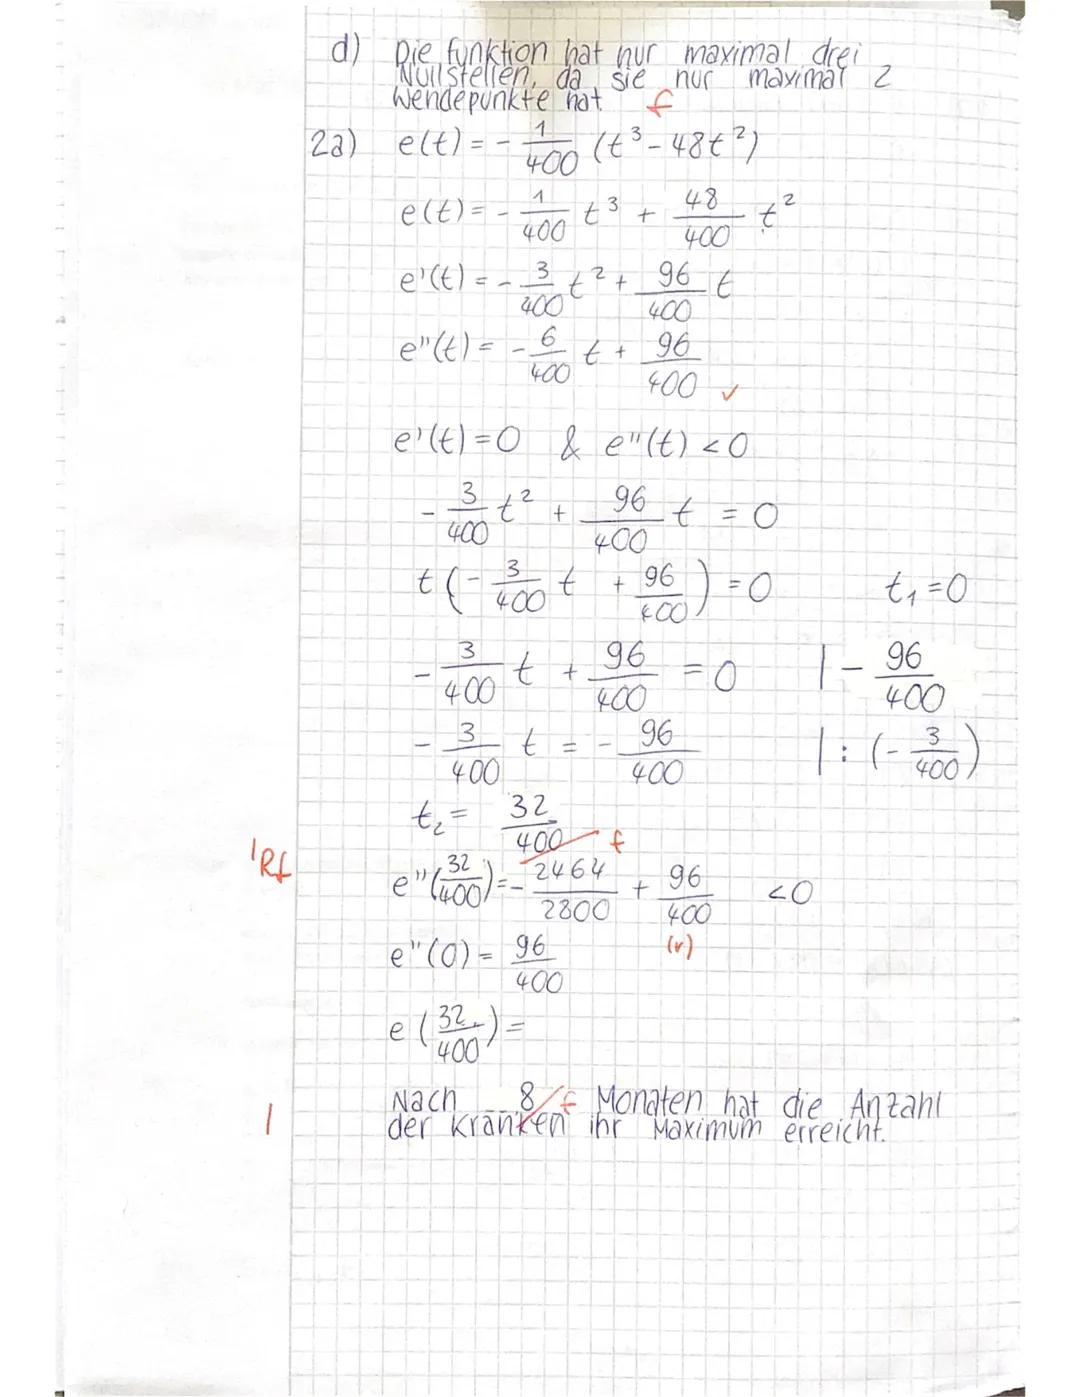 d) Die Funktion hat nur maximal drei
Nullstellen, da sie nur maximal 2
Wendepunkte hat. f
2a) e(t) = - 1/400 (t³ - 48t²)
e(t) = - 1/400 t³ + 48/400 t²
e'(t) = - 3/400 t² + 96/400 t
e''(t) = - 6/400 t + 96/400 ✓
e'(t) = 0 & e''(t) < 0
- 3/400 t² + 96/400 t = 0
t (- 3/400 t + 96/400) = 0 t₁ = 0
- 3/400 t + 96/400 = 0 | - 96/400
- 3/400 t = - 96/400 | : (- 3/400)
t₂ = 32/400 f
Rf e''(32/400) = - 2464/2800 + 96/400 < 0
(r)
e''(0) = 96/400
e (32/400) =
Nach 8 f Monaten hat die Anzahl
der Kranken ihr Maximum erreicht.